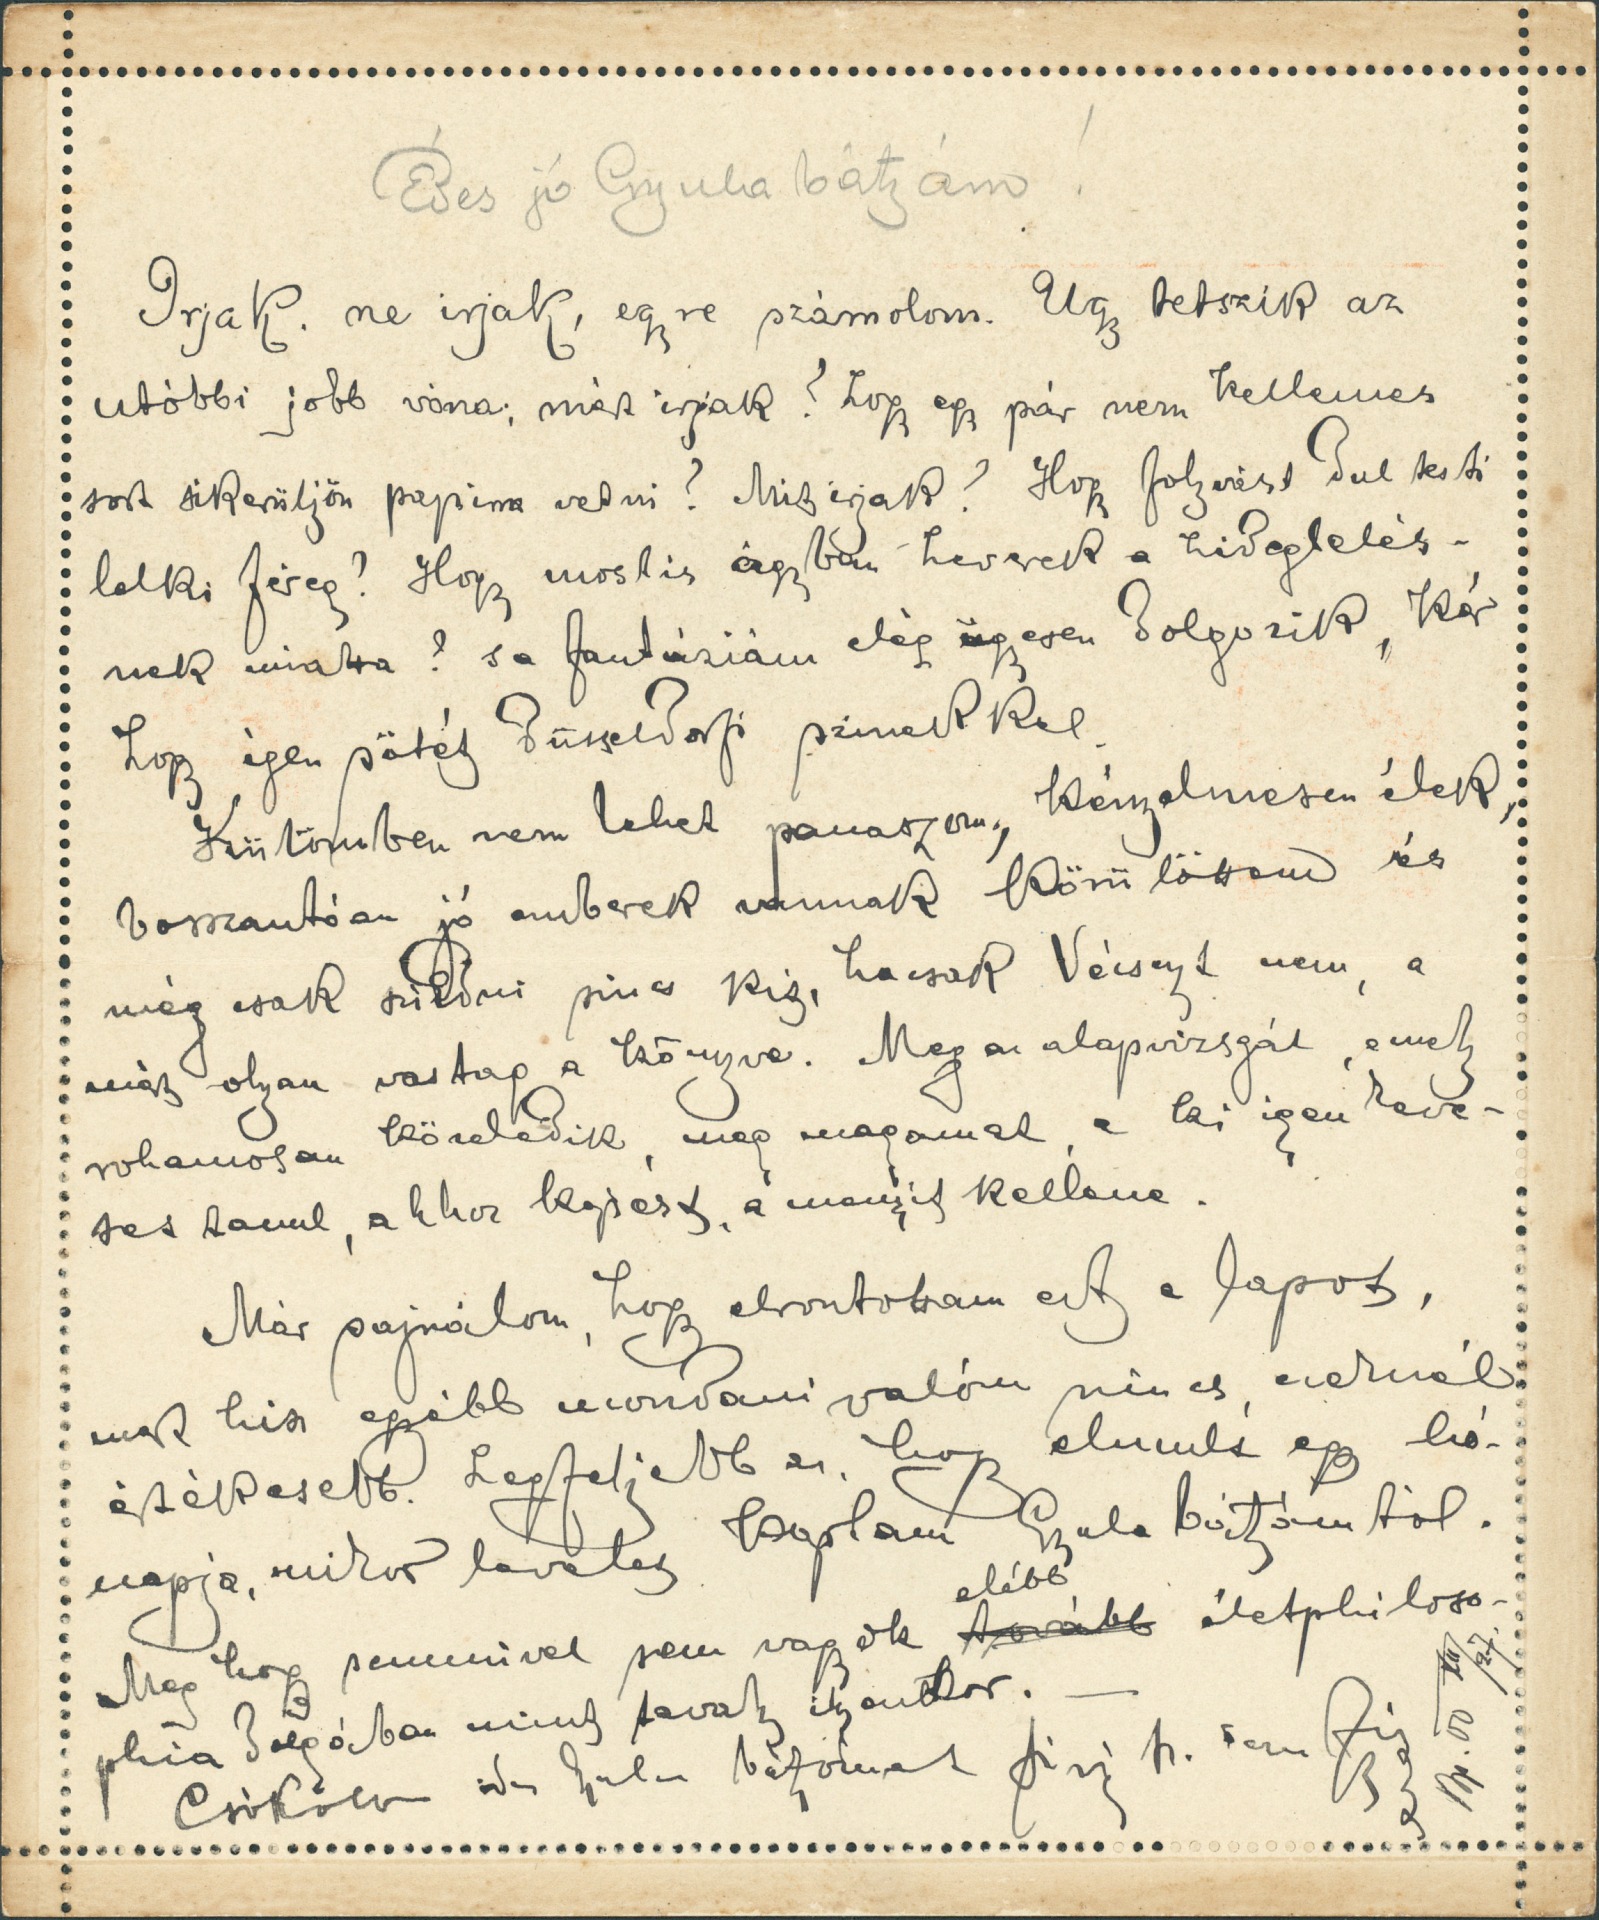 Édes jó Gyula bátyám!
Irjak, ne irjak, egyre számolom. Ugy tetszik az
utóbbi jobb vóna; mért irjak? hogy egy pár nem kellemes
sort sikerüljön papirra vetni? Mit irjak? Hogy folyvást dul testi
lelki féreg? Hogy most is ágyban heverek a hideglelés-
nek miatta? s a fantáziám elég ügyesen dolgozik, kár
hogy igen sötét düsseldorfi szinekkel.
Különben nem lehet panaszom, kényelmesen élek,
bosszantóan jó emberek vannak körülöttem és
még csak szidni sincs kit, hacsak Vécseyt nem, a
mért olyan vastag a könyve. Meg az alapvizsgát, amely
rohamosan közeledik, meg magamat, a ki igen keve-
set tanul, ahhoz képest, a mennyit kellene.
Már sajnálom, hogy elrontottam ezt a lapot,
mert hisz egyébb mondani valóm nincs, ezeknél
értékesebb. Legfeljebb az, hogy elmult egy hó-
napja, mikor levelet kaptam Gyula bátyámtól.
Meg hogy semmivel sem vagyok elébb életphiloso-
phia dolgában mint tavaly ilyenkor. —
Csókolom édes Gyula bátyámat
Bp. 00 XII/27.